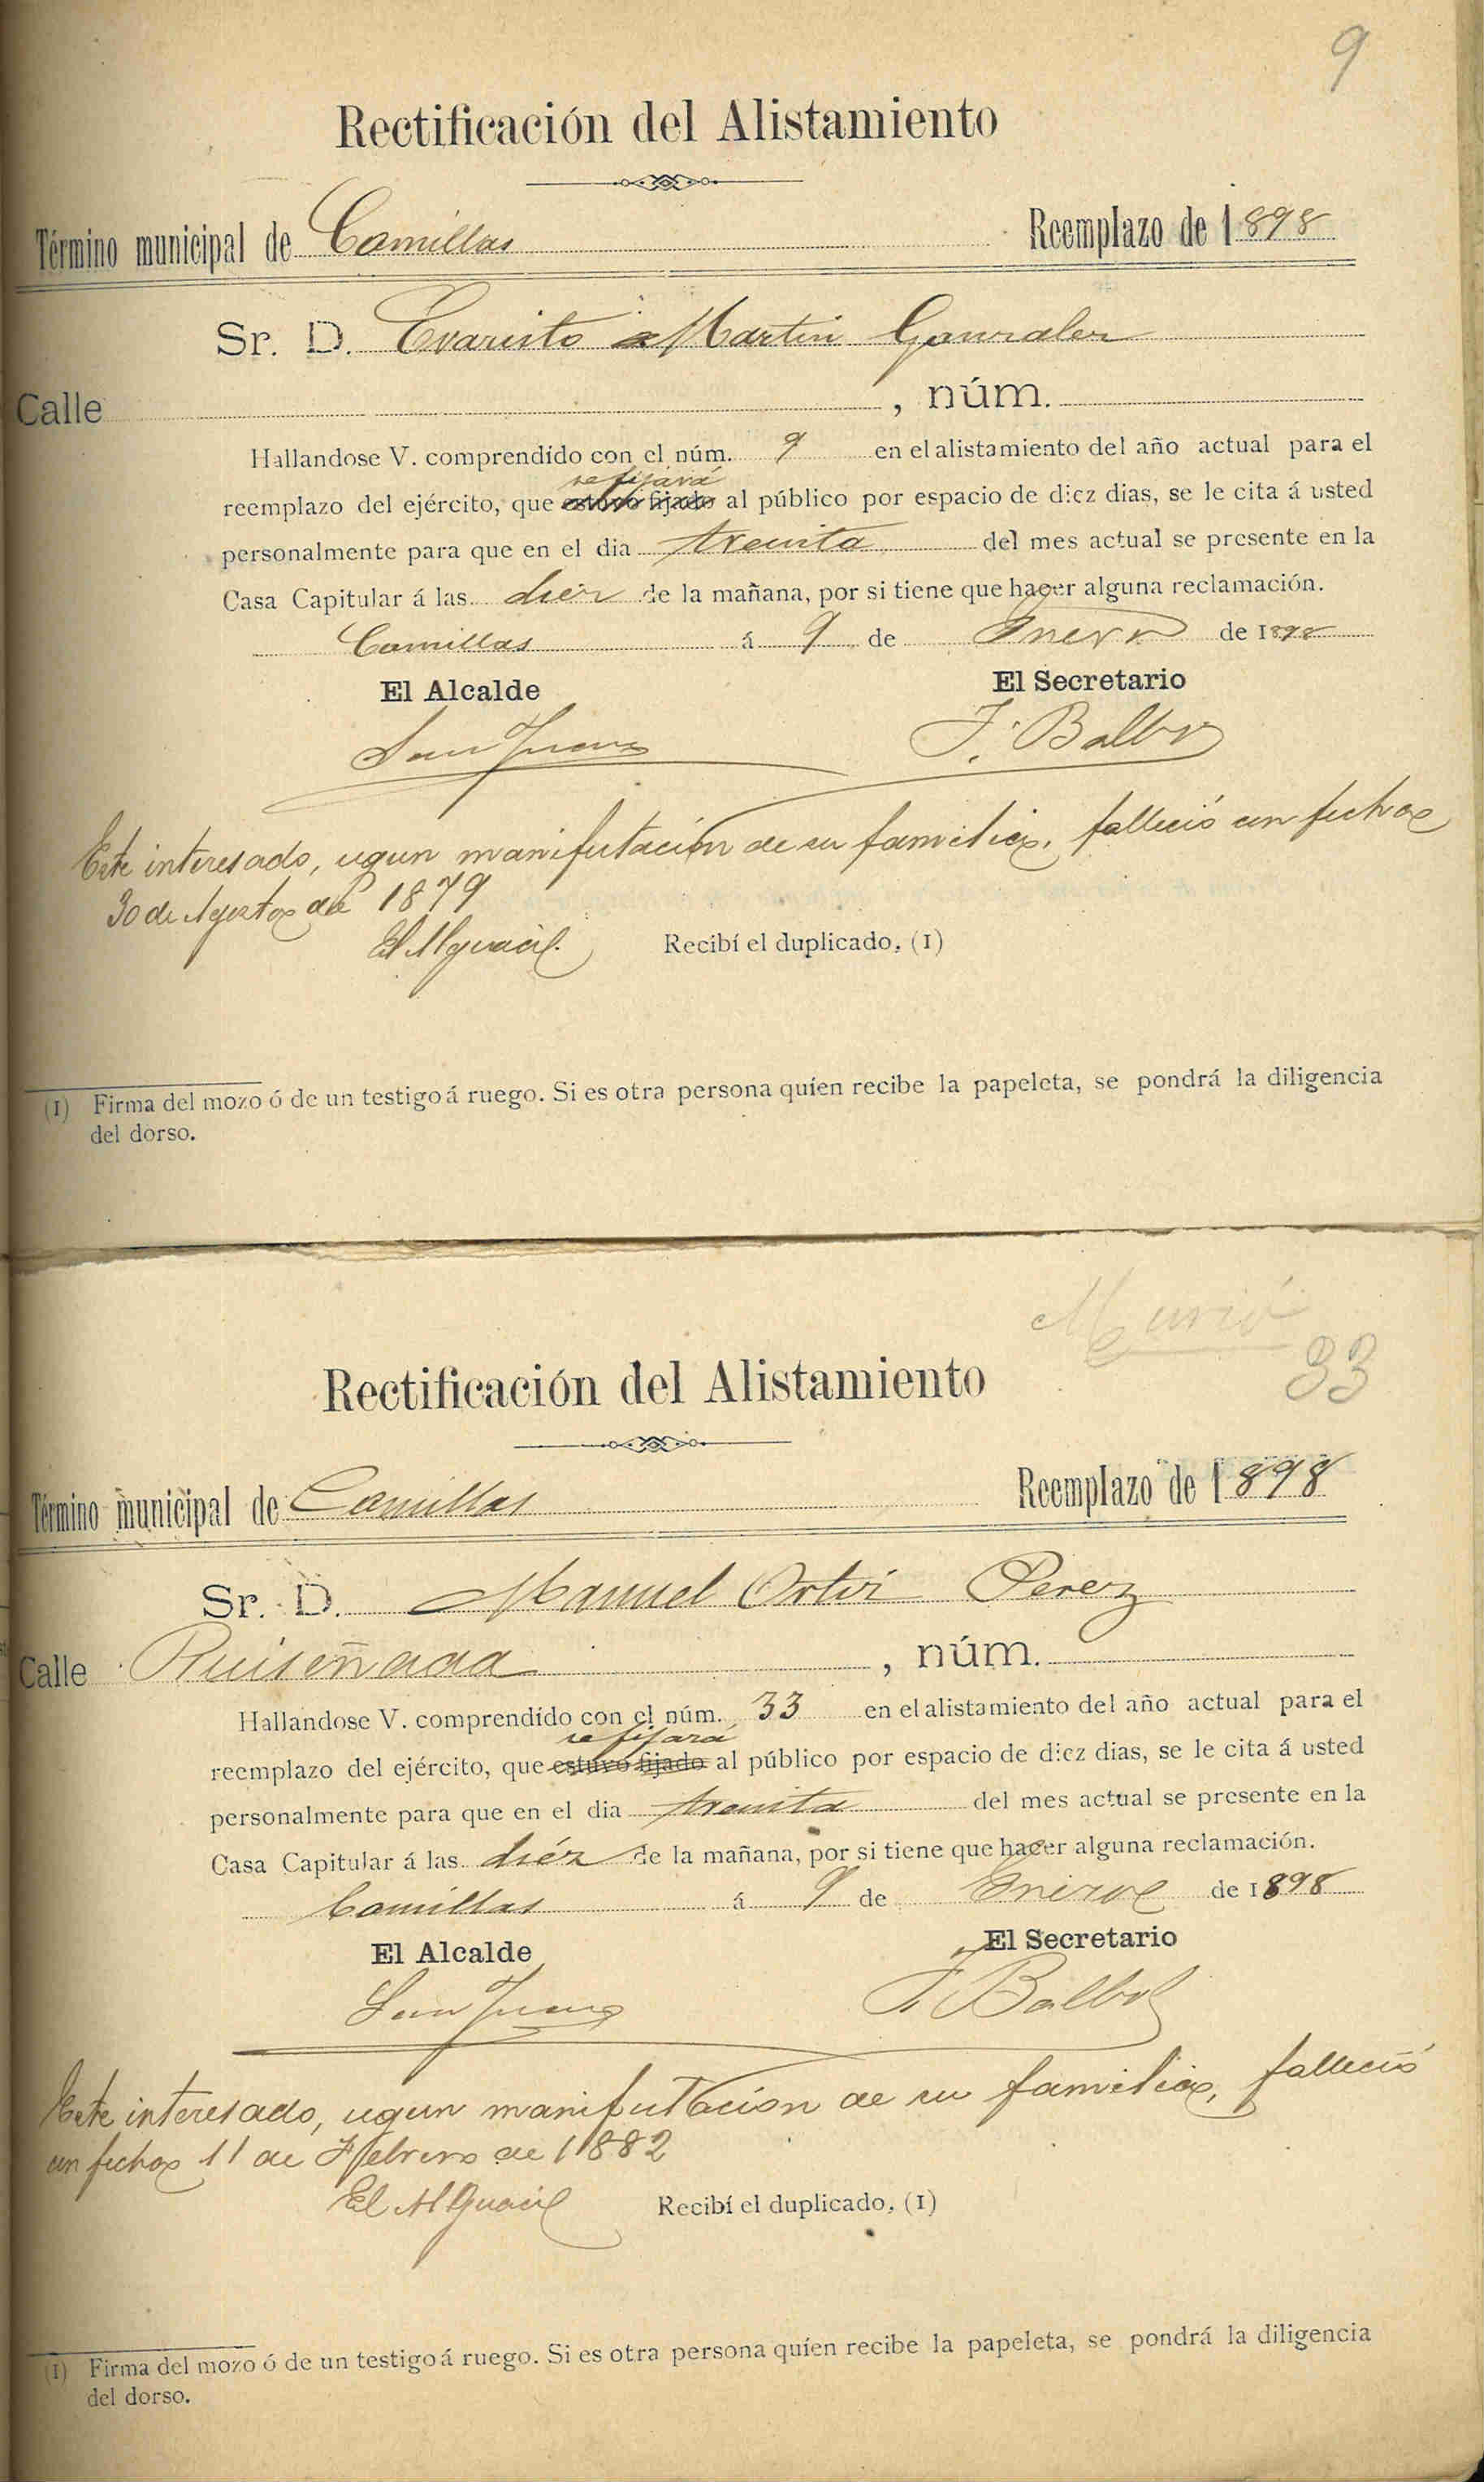 9
Rectificación del Alistamiento
Término municipal de Comillas Reemplazo de 1898
Sr. D. Evaristo Martin Gonzalez
Calle , núm.
Hallandose V. comprendido con el núm. 9 en el alistamiento del año actual para el
se fijará
reemplazo del ejército, que estuvo fijado al público por espacio de diez dias, se le cita á usted
personalmente para que en el dia treinta del mes actual se presente en la
Casa Capitular á las diez de la mañana, por si tiene que hacer alguna reclamación.
Comillas á 9 de Enero de 1898
El Alcalde El Secretario
San Juan F. Balbo
Este interesado, segun manifestación de su familia, falleció con fecha
30 de Agosto de 1879
El Alguacil. Recibí el duplicado, (1)
(1) Firma del mozo ó de un testigo á ruego. Si es otra persona quíen recibe la papeleta, se pondrá la diligencia
del dorso.
Murió
33
Rectificación del Alistamiento
Término municipal de Comillas Reemplazo de 1898
Sr. D. Manuel Ortiz Perez
Calle Ruiseñada , núm.
Hallandose V. comprendido con el núm. 33 en el alistamiento del año actual para el
se fijará
reemplazo del ejército, que estuvo fijado al público por espacio de diez dias, se le cita á usted
personalmente para que en el dia treinta del mes actual se presente en la
Casa Capitular á las diéz de la mañana, por si tiene que hacer alguna reclamación.
Comillas á 9 de Enero de 1898
El Alcalde El Secretario
San Juan F. Balbo
Este interesado, segun manifestación de su familia, falleció
con fecha 11 de Febrero de 1882
El Alguacil Recibí el duplicado, (1)
(1) Firma del mozo ó de un testigo á ruego. Si es otra persona quíen recibe la papeleta, se pondrá la diligencia
del dorso.